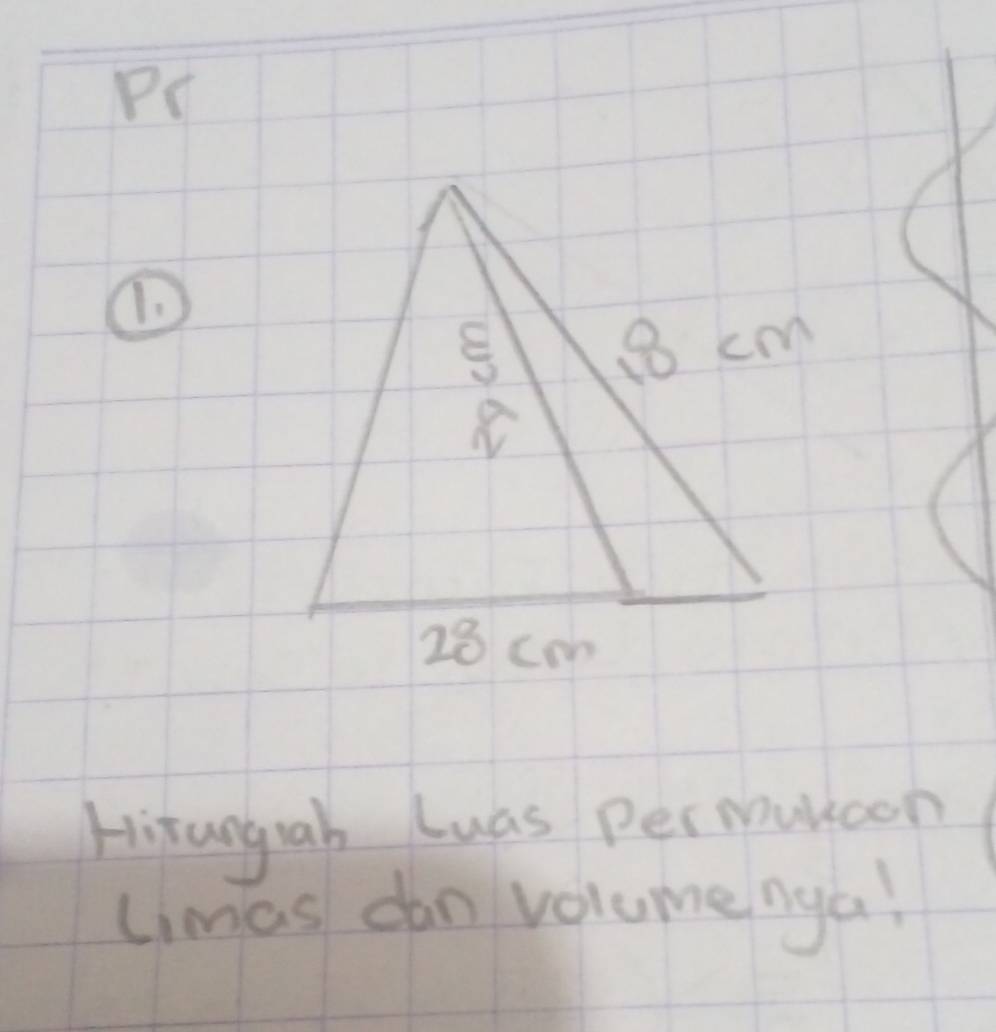 Pr
1.
18 cm
24 cm
28 cm
Hitunglah Luas permukaan
Limas dan volumenya!